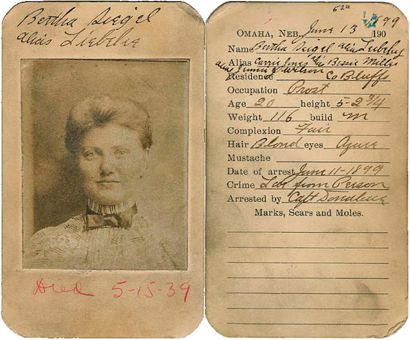 Bertha Siegel
alias Liebche
Died 5-15-39
1899
OMAHA, NEB. June 13 190
Name Bertha Siegel alias Liebche
Alias Carrie Jones Bessie Millis
alias Jennie Wilson
Residence Co Bluffs
Occupation Prost
Age 20 height 5-2 3/4
Weight 116 build m
Complexion Fair
Hair Blond eyes Azure
Mustache
Date of arrest June-11-1899
Crime Lar from Person
Arrested by Capt
Marks, Scars and Moles.